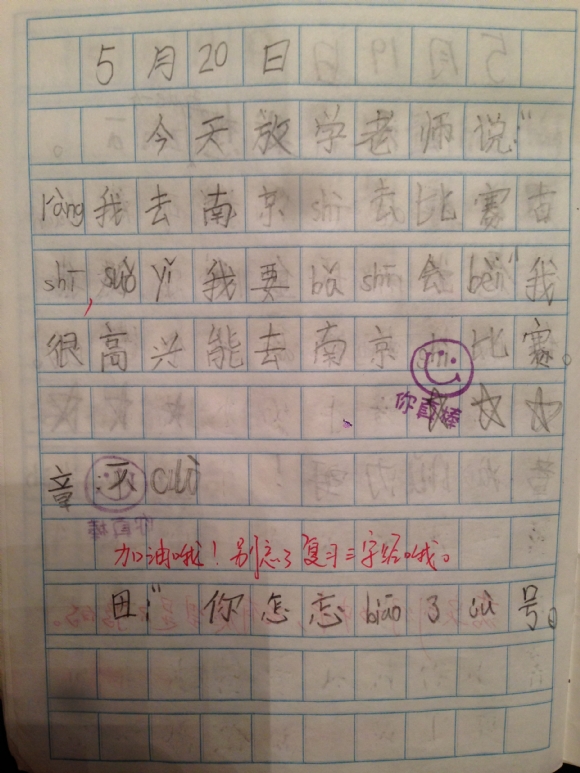 5月20日
今天放学老师说:"
ràng我去南京shī去比赛古
shī,suǒ yǐ我要bǎ shī会bèi"我
很高兴能去南京shī比赛。
你真棒
章 cuò
你真棒
加油哦!别忘了复习三字经哦。
田:"你怎忘biāo了cuò号。